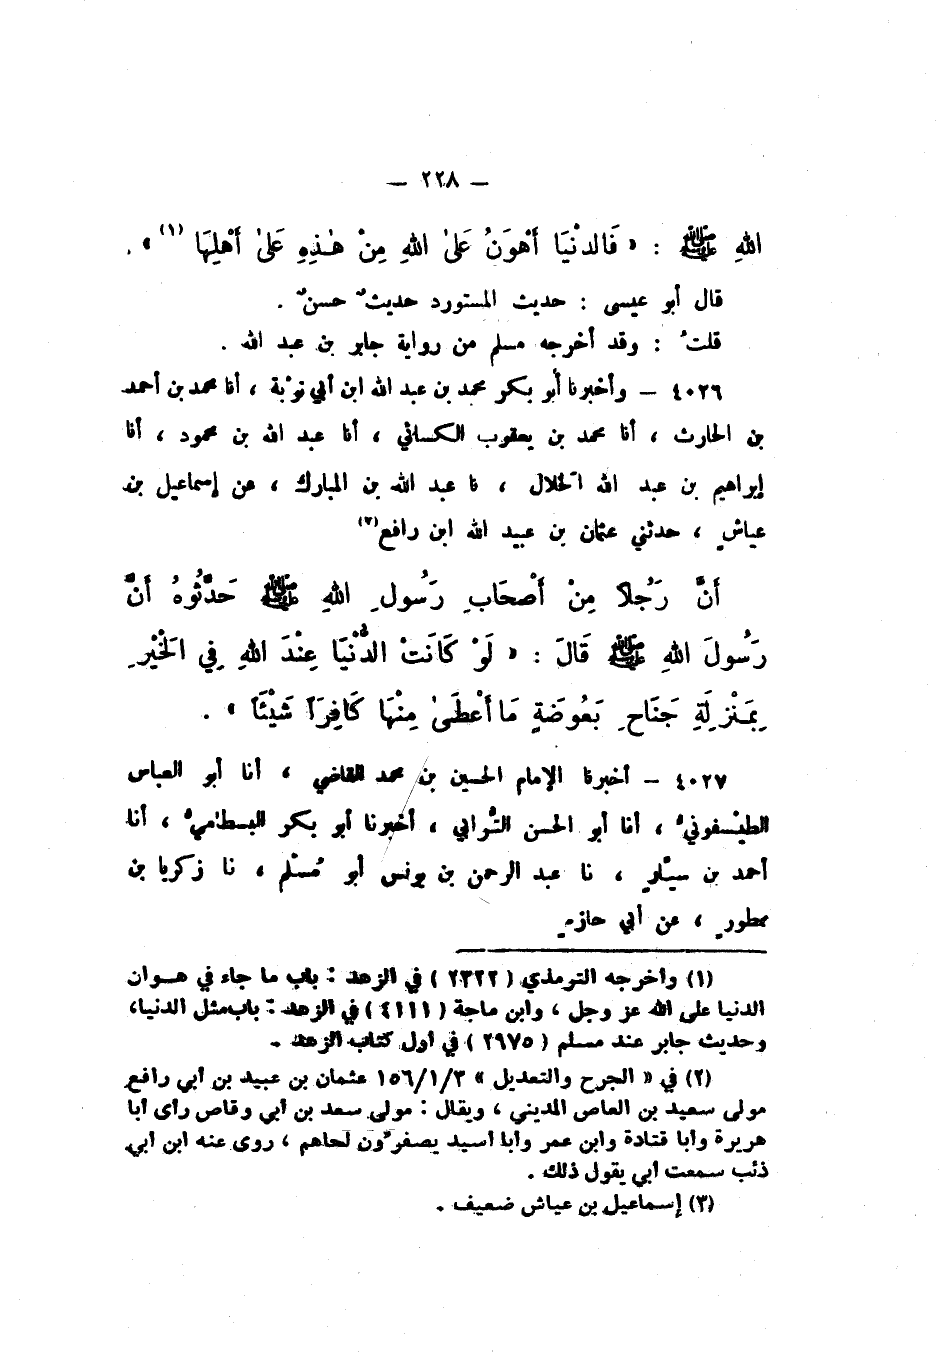 — ٢٢٨ —
اللهِ ﷺ : « فَالدنْيَا أَهْوَنُ عَلىٰ اللهِ مِنْ هٰذِهِ عَلىٰ أَهْلِهَا (١) » .
قال أبو عيسى : حديث المستورد حديثٌ حسنٌ .
قلتُ : وقد أخرجه مسلم من رواية جابر بن عبد الله .
٤٠٢٦ – وأخبرنا أبو بكر محمد بن عبد الله ابن أبي توبة ، أنا محمد بن أحمد
بن الحارث ، أنا محمد بن يعقوب الكسائي ، أنا عبد الله بن محمود ، أنا
إبراهيم بن عبد الله الخلال ، نا عبد الله بن المبارك ، عن إسماعيل بن
عياشٍ ، حدثني عثمان بن عبيد الله ابن رافع(٢)
أَنَّ رَجُلاً مِنْ أَصْحَابِ رَسُولِ اللهِ ﷺ حَدَّثُوهُ أَنَّ
رَسُولَ اللهِ ﷺ قَالَ : « لَوْ كَانَتْ الدُّنْيَا عِنْدَ اللهِ فِي الْخَيْرِ
بِمَنْزِلَةِ جَنَاحِ بَعُوضَةٍ مَا أَعْطَىٰ مِنْهَا كَافِرَاً شَيْئَاً » .
٤٠٢٧ – أخبرنا الإمام الحسين بن محمد القاضي ، أنا أبو العباس
الطيْسفونيُّ ، أنا أبو الحسن الترابي ، أخبرنا أبو بكر البسطاميُّ ، أنا
أحمد بن سيَّارٍ ، نا عبد الرحمن بن يونس أبو مُسْلم ، نا زكريا بن
منظورٍ ، عن أبي حازمٍ
(١) وأخرجه الترمذي ( ٢٣٢٢ ) في الزهد : باب ما جاء في هوان
الدنيا على الله عز وجل ، وابن ماجة ( ٤١١١ ) في الزهد : باب مثل الدنيا،
وحديث جابر عند مسلم ( ٢٩٧٥ ) في أول كتاب الزهد .
(٢) في « الجرح والتعديل » ١٥٦/١/٣ عثمان بن عبيد بن أبي رافع
مولى سعيد بن العاص المديني ، ويقال : مولى سعد بن أبي وقاص رأى أبا
هريرة وأبا قتادة وابن عمر وأبا أسيد يصفرون لحاهم ، روى عنه ابن أبي
ذئب سمعت أبي يقول ذلك .
(٣) إسماعيل بن عياش ضعيف .